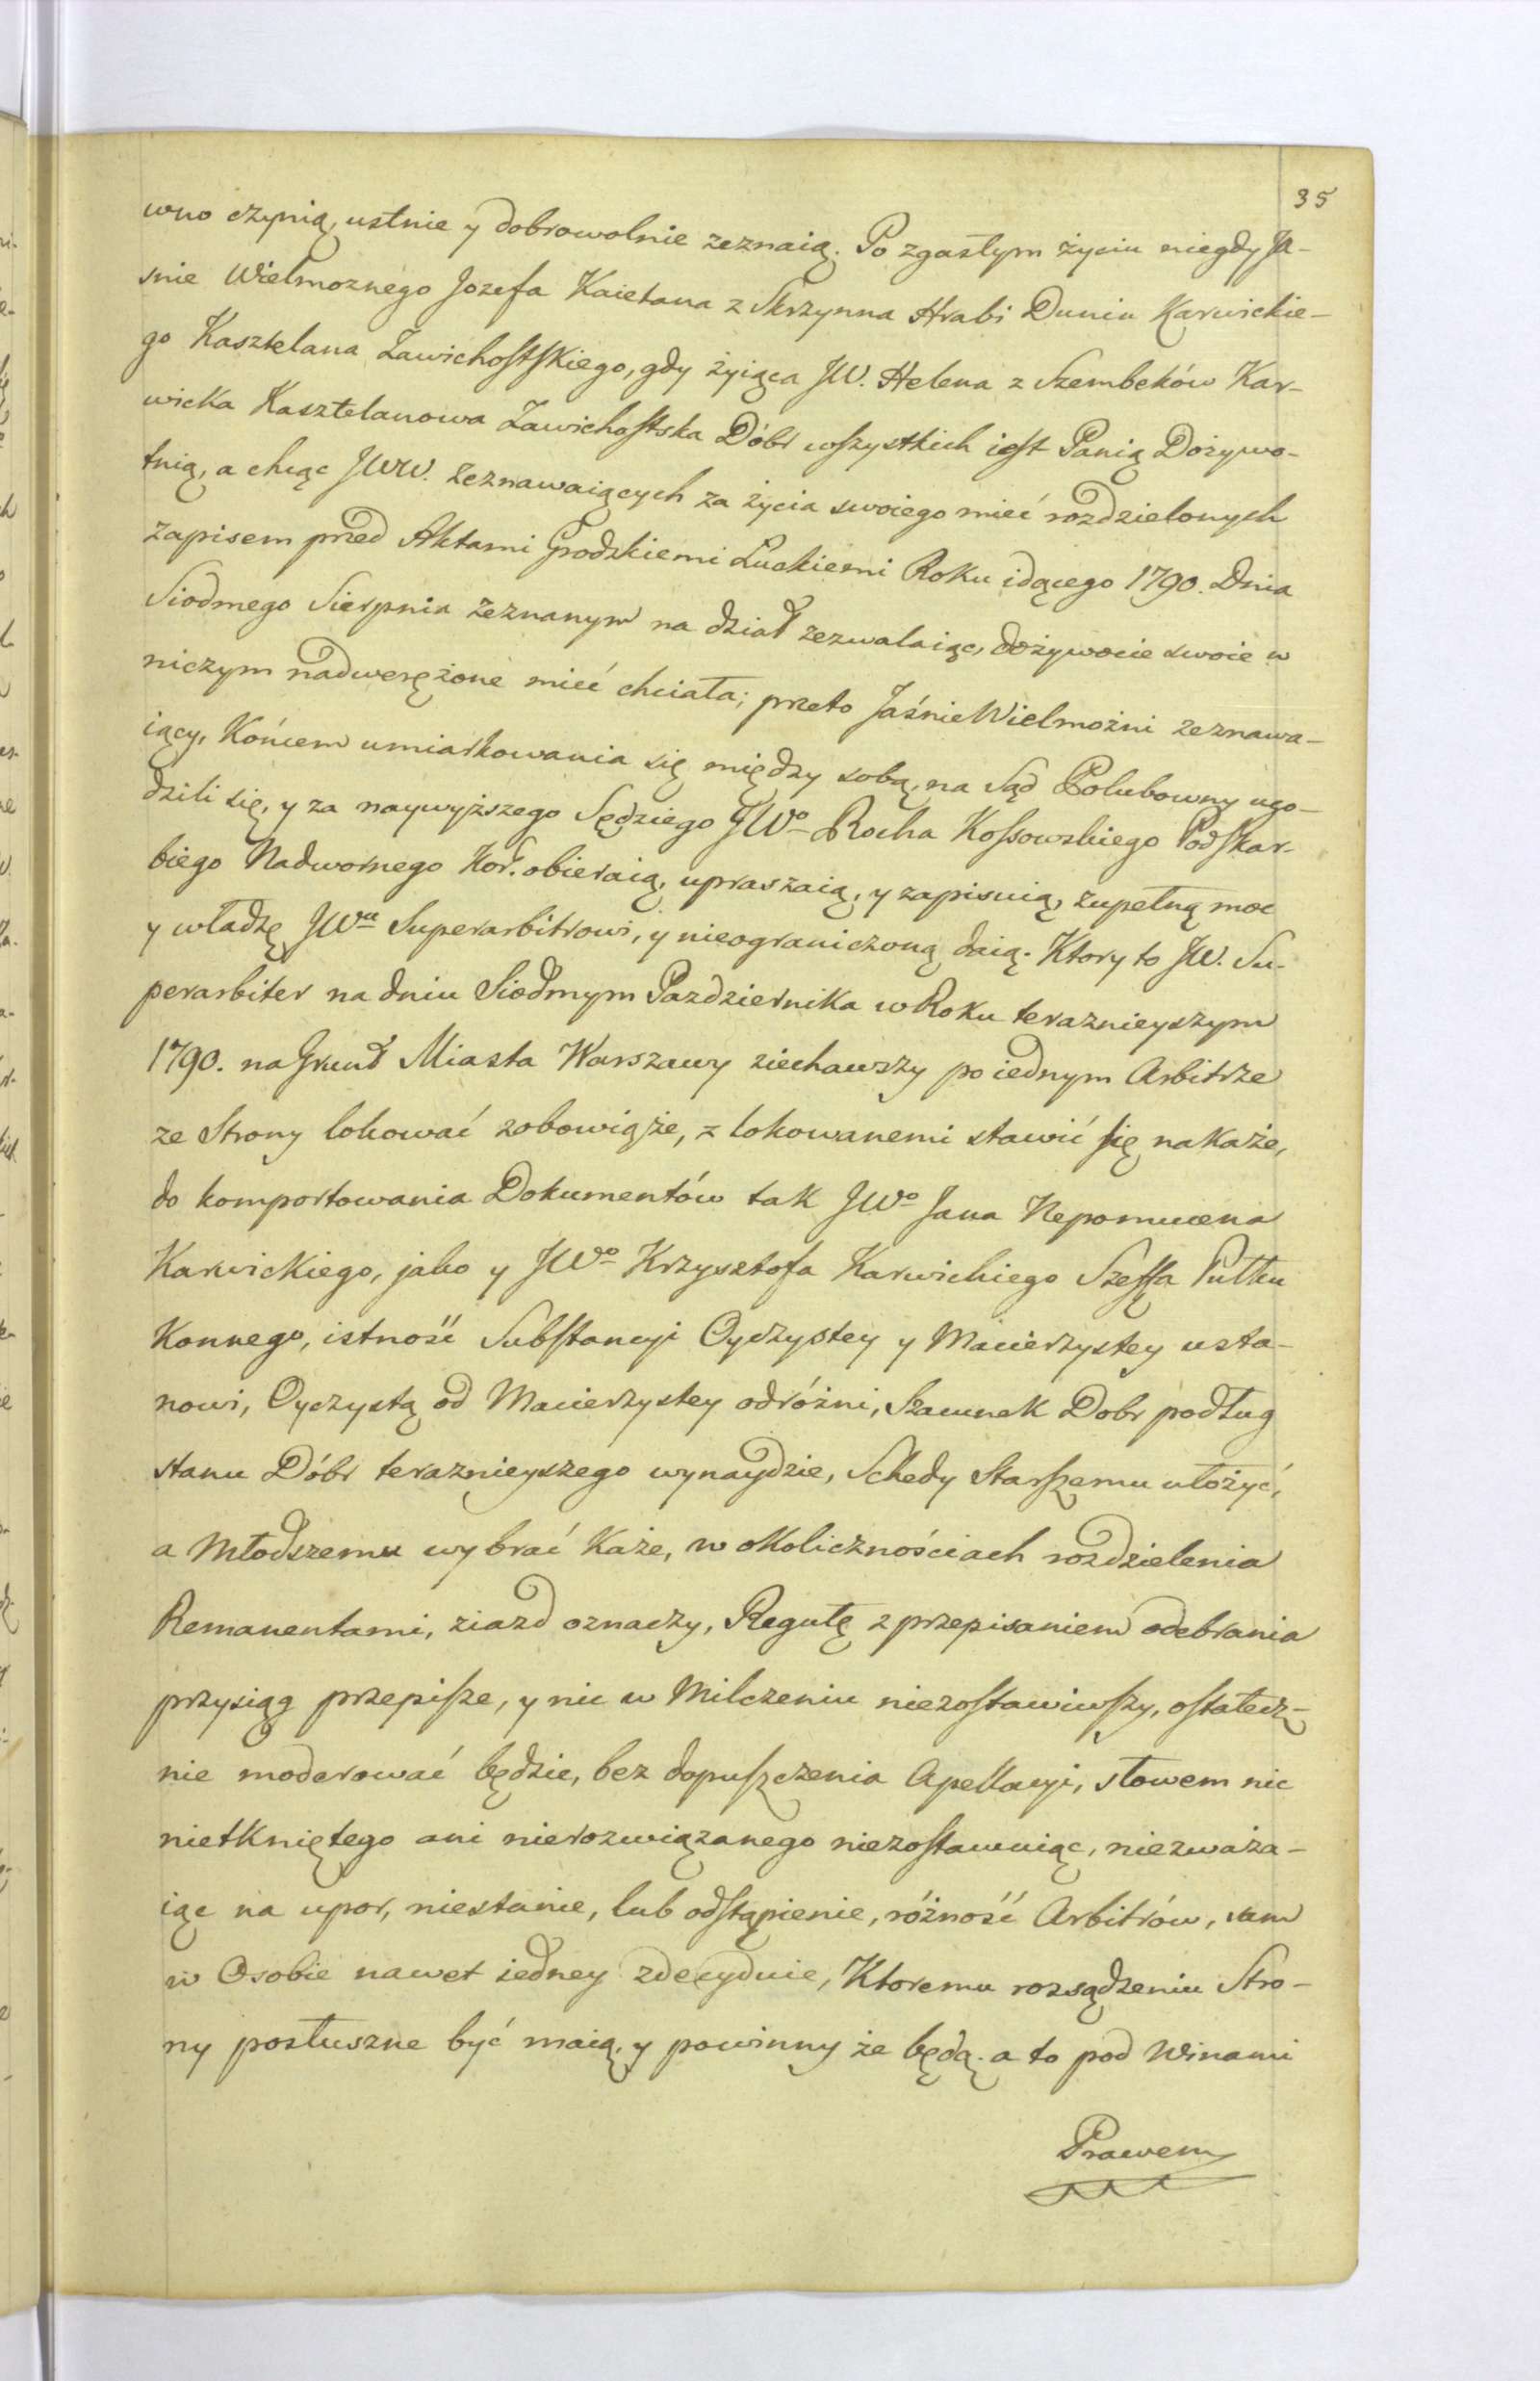 35
wno czynią, ustnie y dobrowolnie zeznaią. Po zgasłym życiu niegdy Ja-
snie Wielmoznego Jozefa Kaietana z Skrzynna Hrabi Duniu Karwickie-
go Kasztelana Zawichostskiego, gdy żyiąca JW. Helena z Szembeków Kar-
wicka Kasztelanowa Zawichostska Dóbr wszystkich iest Panią Dożywo-
tnią, a chcąc JWW. zeznawaiących za życia swoiego mieć rozdzielonych
zapisem przed Aktami Grodzkiemi Łuckiemi Roku idącego 1790. Dnia
Siodmego Sierpnia zeznanym na dział zezwalaiąc, dożywocie swoie w
niczym nadweręzone mieć chciała; przeto Jaśnie Wielmożni zeznawa-
iący, Końcem umiarkowania się między sobą, na Sąd Polubowny ugo-
dzili się, y za naywyższego Sędziego JWo Rocha Kossowskiego Podskar-
biego Nadwornego Kor. obieraią, upraszaią, y zapisuią, zupełną moc
y władzę JWu Superarbitrowi, y nieograniczoną daią. Ktory to JW. Su-
perarbiter na dniu Siodmym Pazdziernika w Roku teraznieyszym
1790. na Grunt Miasta Warszawy ziechawszy po iednym Arbitrze
ze Strony lokować zobowiąże, z lokowanemi stawić się nakaże,
do komportowania Dokumentów tak JWo Jana Nepomucena
Karwickiego, jako y JWo Krzysztofa Karwickiego Szeffa Pułku
Konnego, istność Substancyi Oyczystey y Macierzystey usta-
nowi, Oyczystą od Macierzystey odróżni, Szacunek Dobr podług
stanu Dóbr teraznieyszego wynaydzie, Schedy Starszemu ułożyć,
a Młodszemu wybrać Każe, w okolicznościach rozdzielenia
Remanentami, ziazd oznaczy, Regułę z przepisaniem odebrania
przysiąg przepisze, y nic w Milczeniu niezostawiwszy, ostatecz-
nie moderować będzie, bez dopuszczenia Apellacyi, słowem nic
nietkniętego ani nierozwiązanego niezostawuiąc, niezważa-
iąc na upor, niestanie, lub odstąpienie, różność Arbitrów, sam
w Osobie nawet iedney zdecyduie, Ktoremu rozsądzeniu Stro-
ny posłuszne być maią, y powinny że będą. a to pod Winami
Prawem